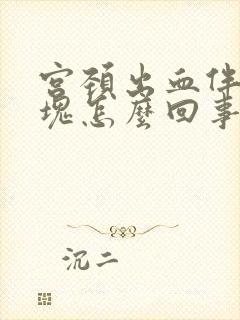 宫颈出血伴
塊怎麼回事
沉二